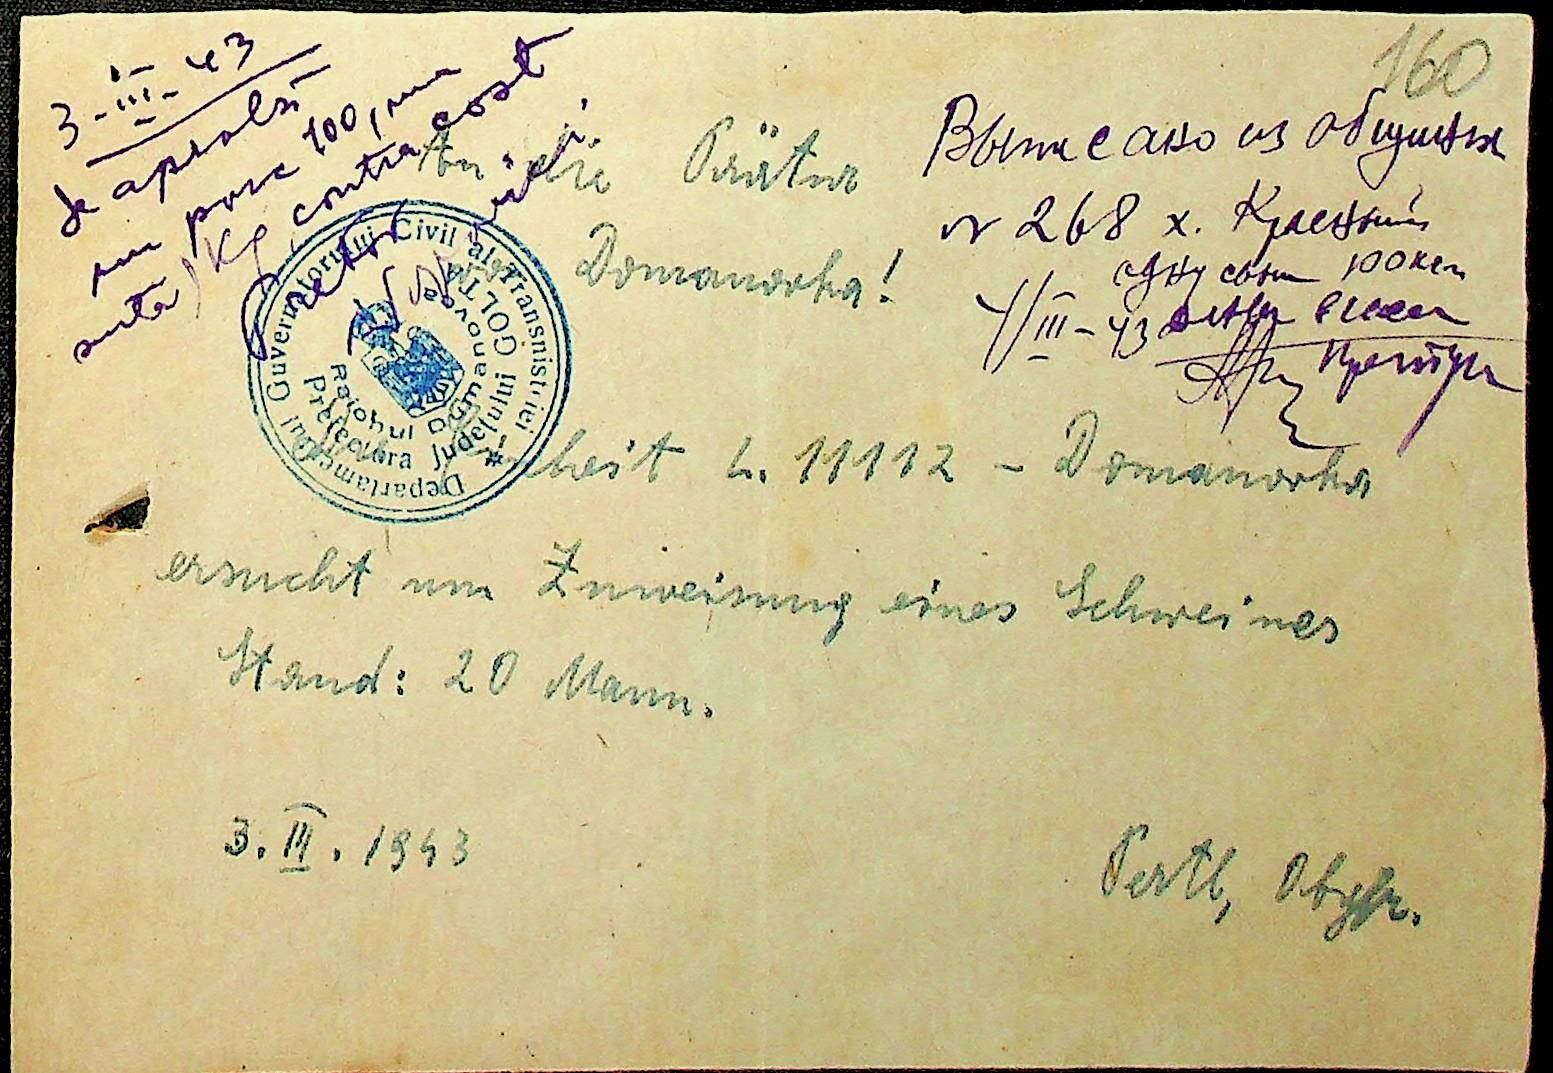 160
3-III-43
Se aprobă
un porc 100, una
sută Kg contra cost
Pretor
Выписано из общины
№ 268 х. Красный
одну свинью 100 кгл
4/III-43
Претура
An die Prätur
Domanovka!
Departamentul Guvernatorului Civil al Transnistriei
Prefectura Județului GOLTA
Raionul Dumanovca
Einheit L. 11112 – Domanovka
ersucht um Zuweisung eines Schweines
Stand: 20 Mann.
3. III. 1943
Pertl, Obgfr.